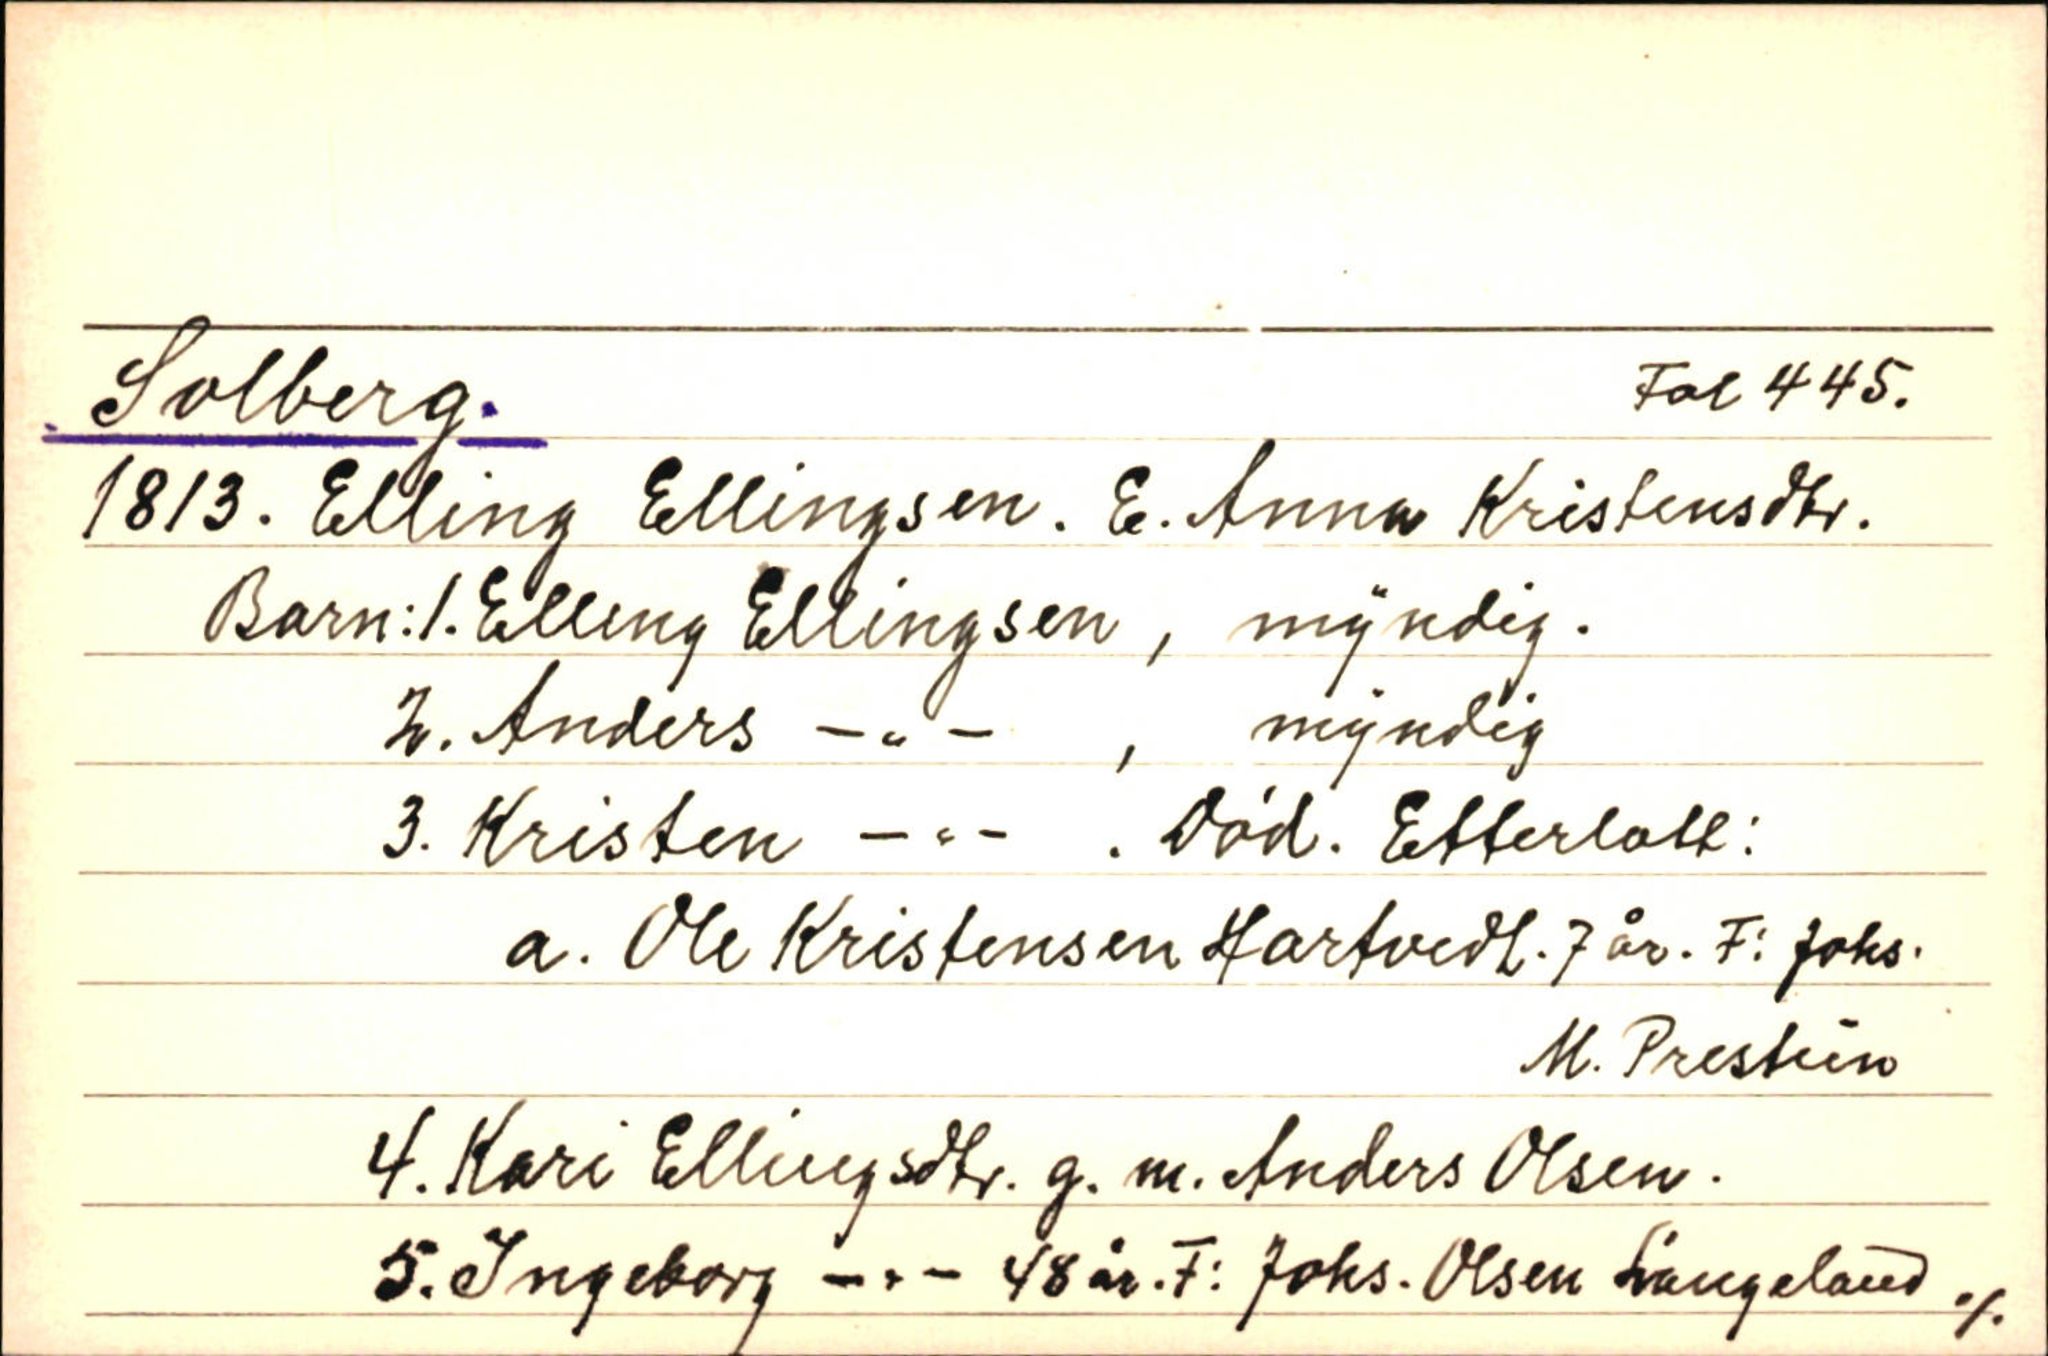 Solberg. Fol 445.
1813. Elling Ellingsen. E. Anna Kristensdtr.
Barn: 1. Elling Ellingsen, myndig.
2. Anders -"- , myndig
3. Kristen -"- . Död. Etterlott:
a. Ole Kristensen Hartvedt. 7 år. F: Johs.
M. Prestun
4. Kari Ellingsdtr. g. m. Anders Olsen.
5. Ingeborg -"- 48 år. F: Johs. Olsen Langeland ./.